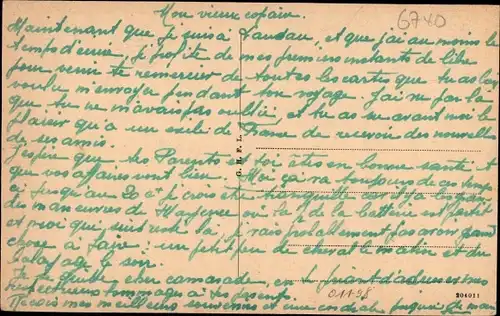 Mon vieux copain.
6740
Maintenant que je suis à Landau, et que j'ai au moins le
temps d'écrire, je profite de mes premiers instants de libre
pour venir te remercier de toutes les cartes que tu as bien
voulu m'envoyer pendant ton voyage. J'ai vu par là
que tu ne m'avais pas oublié, et tu as avant moi le
plaisir qu'a un exilé de France de recevoir des nouvelles
de ses amis.
J'espère que tes Parents et toi êtes en bonne santé et
que vos affaires vont bien. Moi ça va toujours
jusqu'au 20 et je crois être tranquille car il y a les gran-
des manœuvres de Mayence où la de la batterie est partie
et moi que suis resté là, je vais probablement pas avoir grand
chose à faire: un petit peu de cheval le matin et du
le soir.
Je te quitte cher camarade, en te priant d'adresser mes
respectueux hommages à tes parents.
Reçois mes meilleurs souvenirs et une cordiale poignée de main
G. H. F. L.
01195
204011